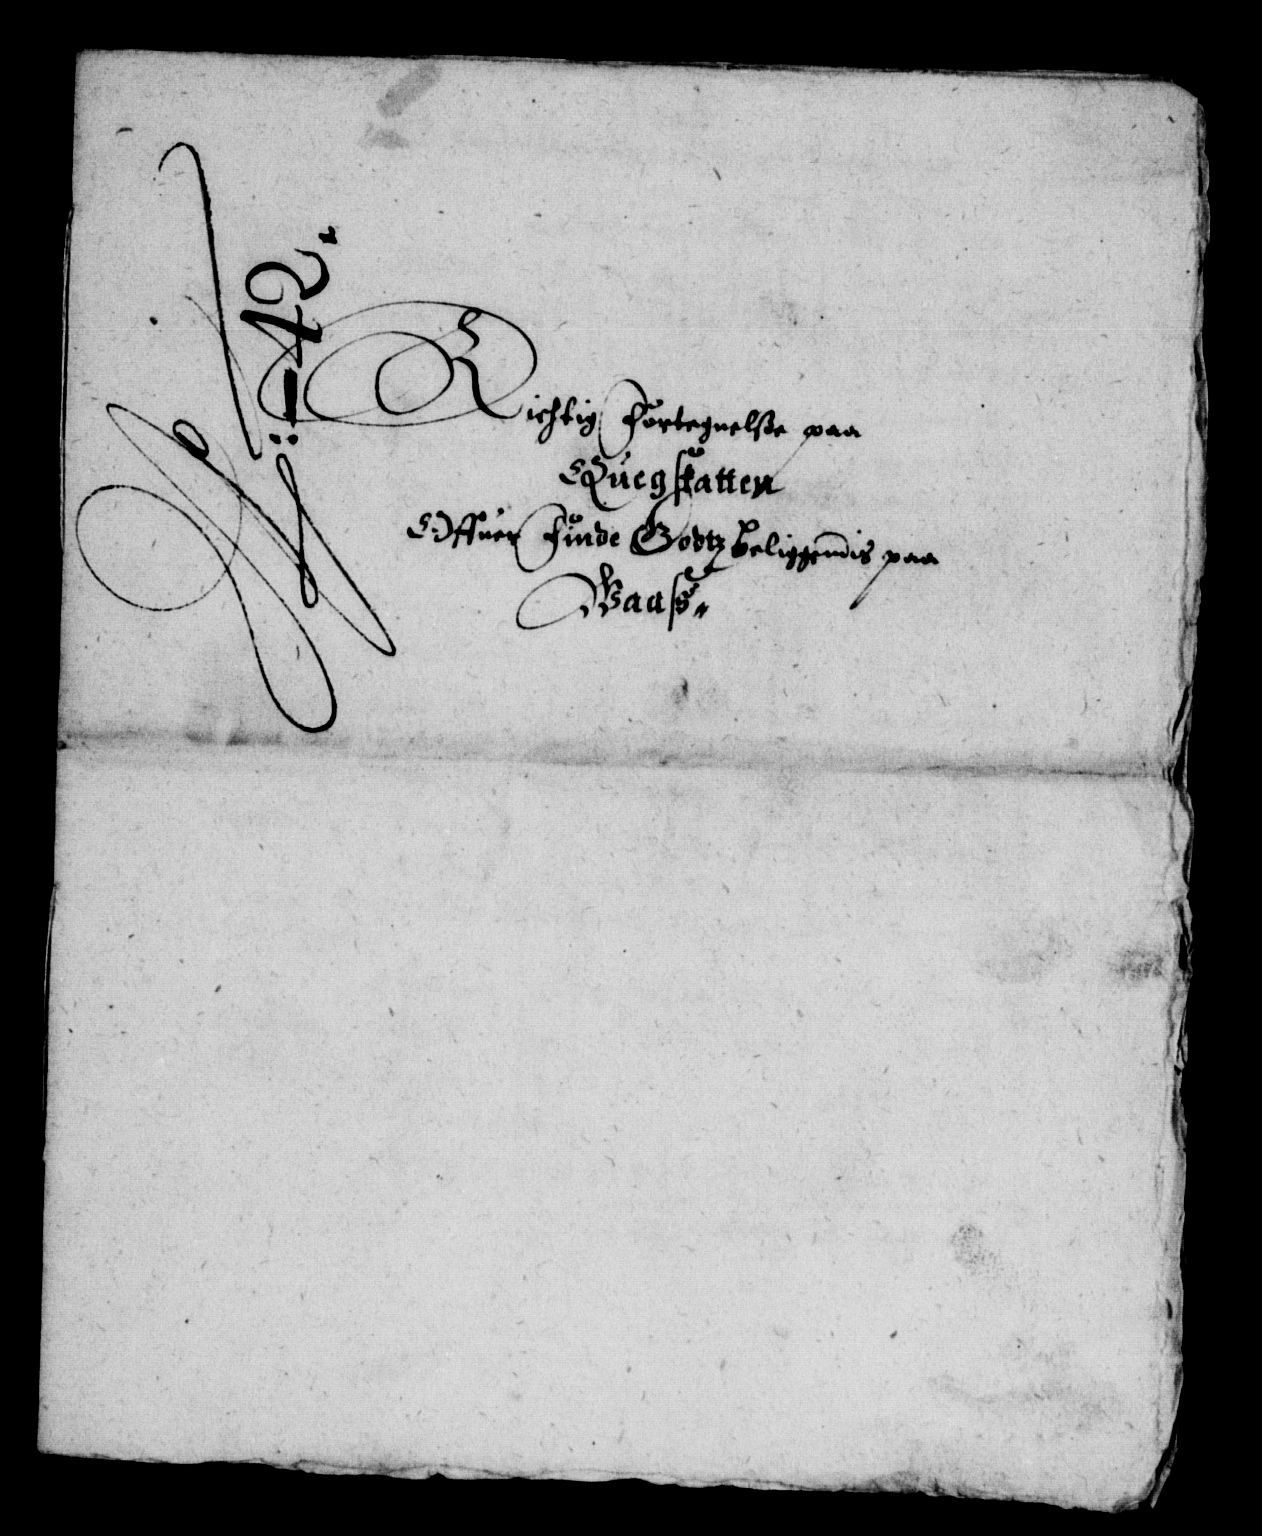 No: 42.
Richtig Fortegnelsse paa
Quegskatten
Offuer Finde Godtz beliggendis paa
Baass.